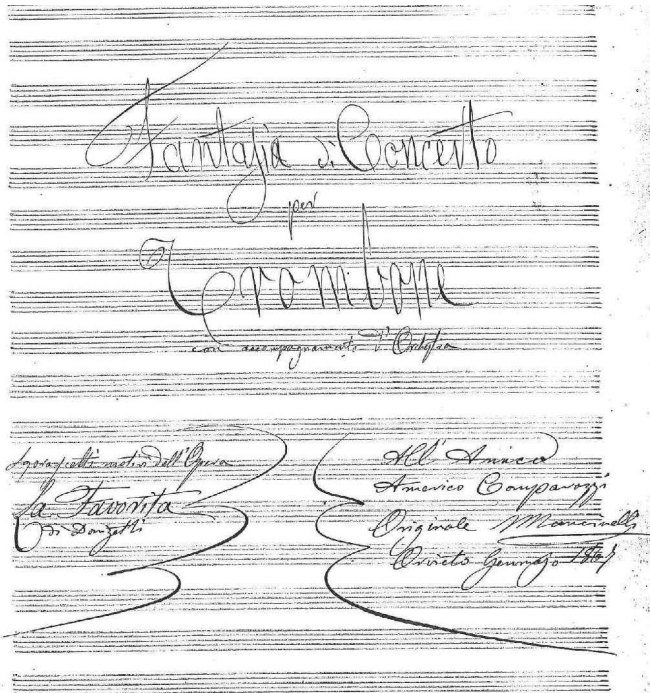 Fantasia di Concerto
per
Trombone
con accompagnamento d'Orchestra
Sopra scelti motivi dell'Opera
La Favorita
di Donizetti
All' Amico
Americo Comparozzi
Originale Mancinelli
Orvieto Gennajo